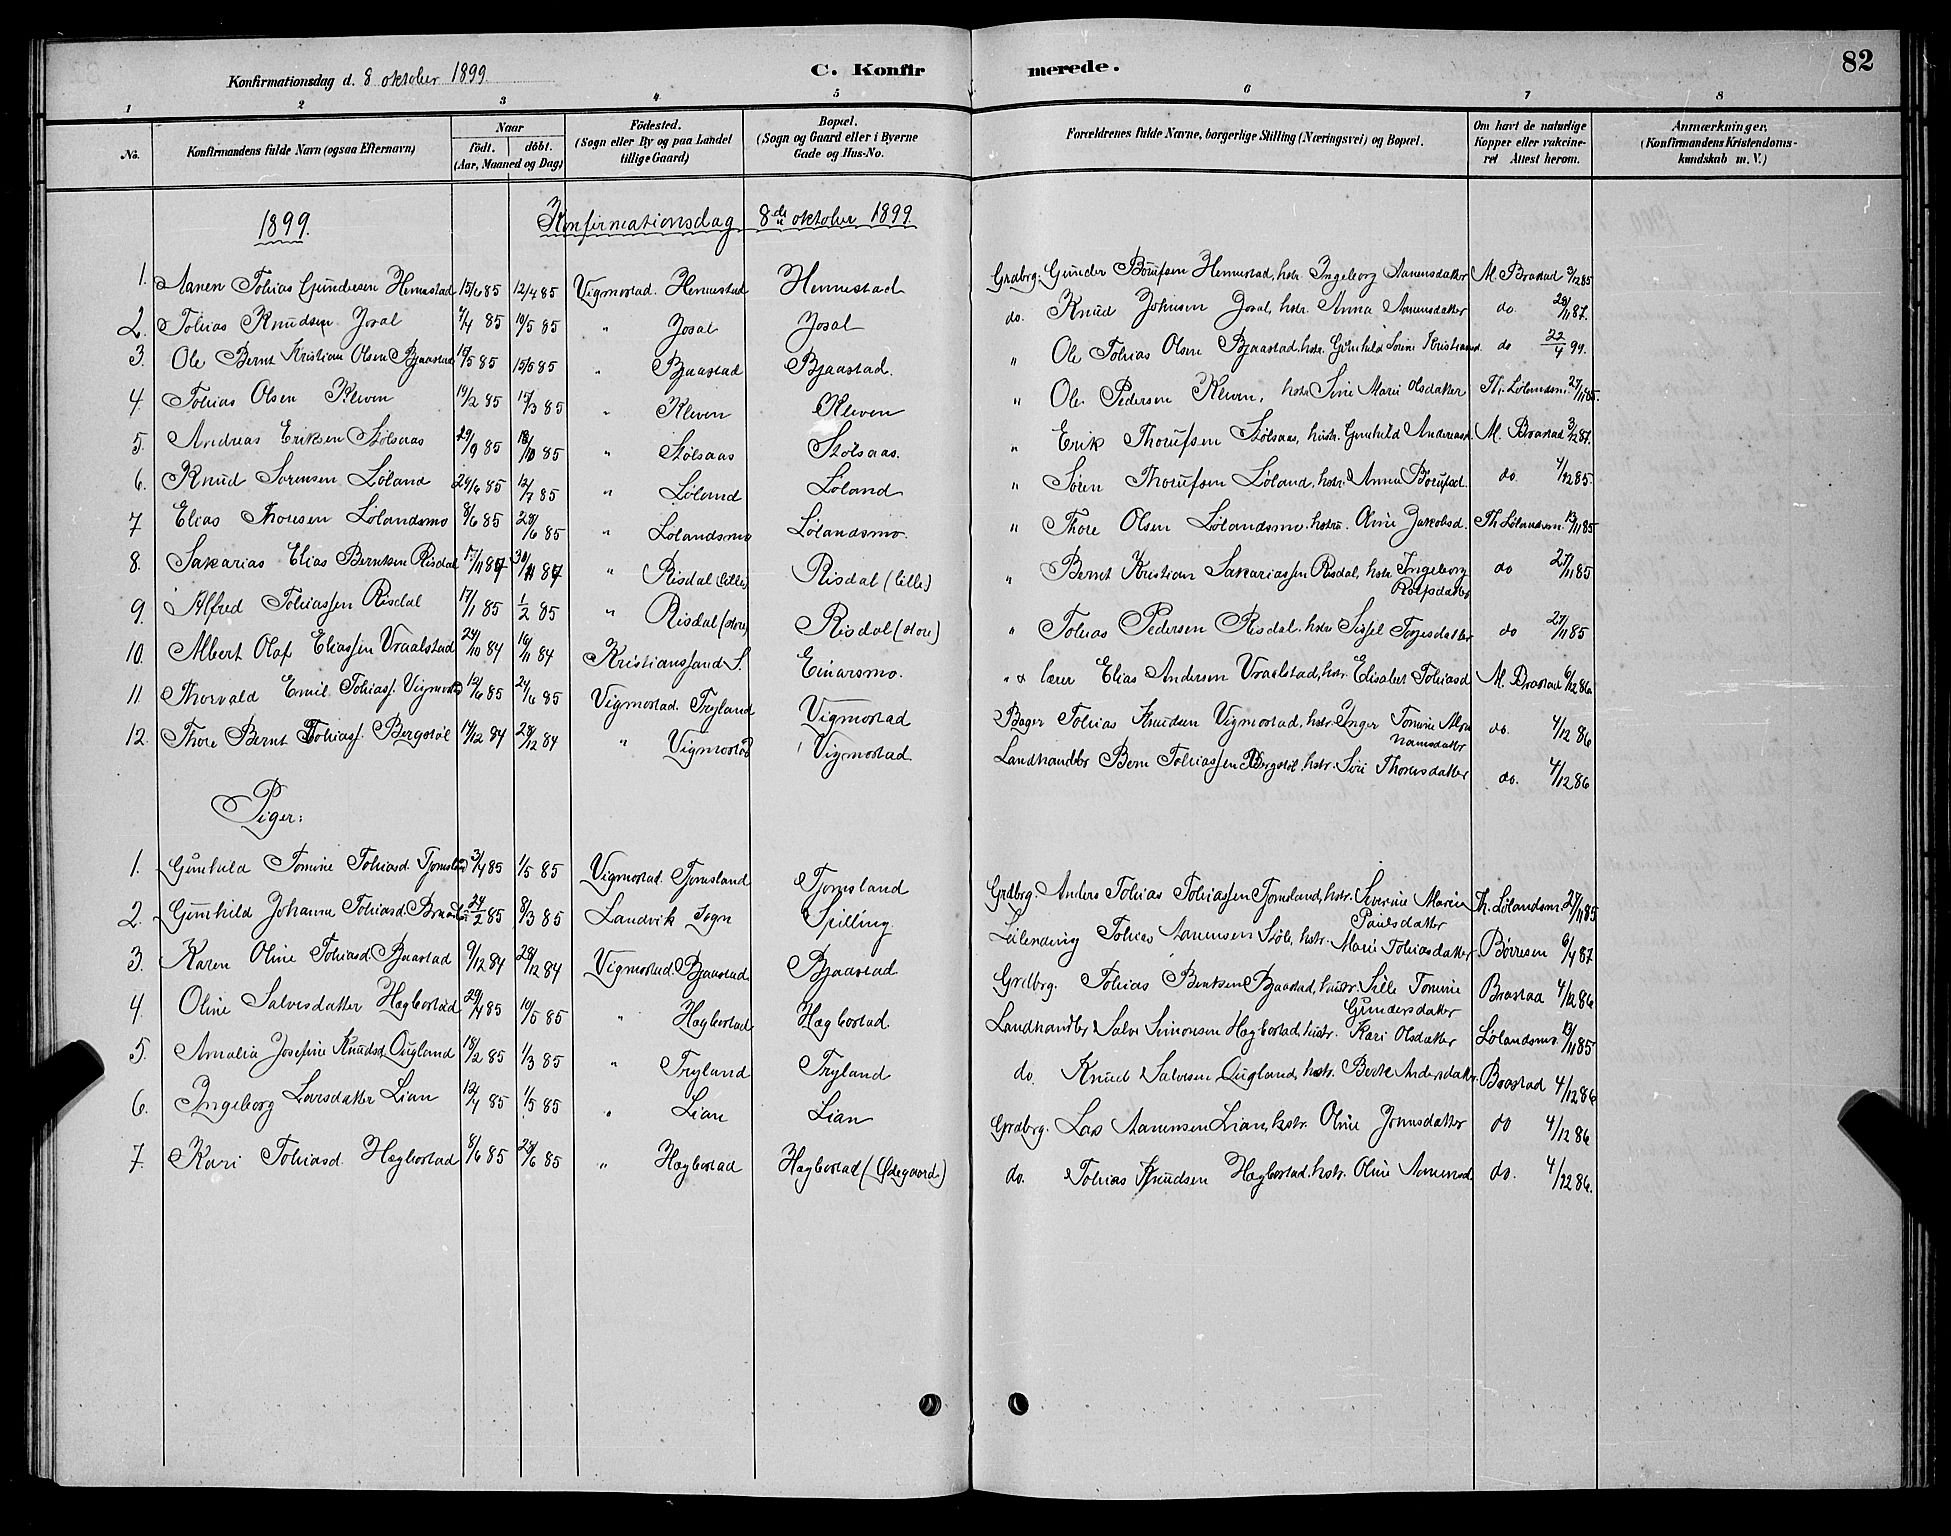 82
Konfirmationsdag d. 8 oktober 1899.
C. Konfirmerede.
1 2 3 4 5 6 7 8
No. Konfirmandens fulde Navn (ogsaa Efternavn) Naar födt. döbt. (Aar, Maaned og Dag) Födested. (Sogn eller By og paa Landet tillige Gaard) Bopæl. (Sogn og Gaard eller i Byerne Gade og Hus-No. Forældrenes fulde Navne, borgerlige Stilling (Næringsvei) og Bopæl. Om havt de naturlige Kopper eller vakcineret Attest herom. Anmærkninger. (Konfirmandens Kristendomskundskab m. V.)
1899. Konfirmationsdag 8de oktober 1899.
1. Aanen Tobias Gundersen Hennestad 15/6 85 12/4 85 Vigmostad. Hennestad Hennestad Grdbrg: Gunder Borufsen Hennestad, hstr Ingeborg Aanensdatter M. Brastad 3/12 85
2. Tobias Knudsen Josal 7/4 85 10/5 85 " Josal Josal do. Knud Johnsen Josal, hstr. Anna Aanensdatter do. 28/11 87.
3. Ole Bernt Kristian Olsen Bjaastad 19/5 85 15/5 85 " Bjaastad Bjaastad. " Ole Tobias Olsen Bjaastad, hstr. Gunhild Sorine Kristiansd. do 22/4 99.
4. Tobias Olsen Kleven 19/2 85 15/3 85 " Kleven Kleven " Ole Pedersen Kleven, hstr Sine Marie Olsdatter Th. Lølandsm. 27/11 85.
5. Andreas Eriksen Stølsaas 29/9 85 18/10 85 " Stølsaas Stølsaas. " Erik Thorufsen Stølsaas, hustr. Gunhild Andreasd. M. Brastad 3/12 87.
6. Knud Sørensen Løland 24/6 85 12/7 85 " Løland Løland " Søren Thorufsen Løland, hstr. Anna Borufsd. do. 4/12 85.
7 Elias Thoresen Lølandsmo 8/6 85 28/6 85 " Lølandsmo Lølandsmo. " Thore Olsen Lølandsmo. hstru. Oline Jakobsd. Th. Lølandsm. 13/11 85
8. Sakarias Elias Berntsen Risdal 17/11 87 30/11 87 " Risdal (lille) Risdal (lille) " Bernt Kristian Sakariassen Risdal, hstr Ingeborg Rolfsdatter do 27/11 85
9. Alfred Tobiassen Risdal 17/1 85 1/2 85 " Risdal (store) Risdal (store) " Tobias Pedersen Risdal. hstr Sissel Torjesdatter do 27/11 85
10. Albert Olaf Eliassen Vraalstad 24/10 84 16/11 84 Kristianssand S. Einarsmo. " & lærer Elias Andersen Vraalstad, hstr. Elisabet Tobiasd M. Brastad 6/12 86.
11 Thorvald Emil Tobiass. Vigmostad 12/6 85 24/6 85 Vigmostad. Tryland Vigmostad Bager Tobias Knudsen Vigmostad, hstr. Inger Tomine Abrahamsdatter do. 4/12 86
12. Thore Bernt Tobiass. Bergstøl 14/12 84 28/12 84 " Vigmostad Vigmostad Landhandler Bern Tobiassen Bergstøl. hstr. Siri Thoresdatter do. 4/12 86
Piger:
1. Gunhild Tomine Tobiasd. Tjomsland 3/4 85 1/5 85 Vigmostad. Tjomsland Tjomsland Grdbrg. Anders Tobias Tobiassen Tjomsland, hstr. Severine Marie Paulsdatter Th. Lølandsm. 27/11 85
2. Gunhild Johanne Tobiasd. 24/2 85 8/3 85 Landvik Sogn Spilling. Leilending Tobias Aanensen Støle, hstr. Marie Tobiasdatter Børresen 6/4 87.
3. Karen Oline Tobiasd. Bjaastad 9/12 84 28/12 84 Vigmostad. Bjaastad Bjaastad Grdbrg. Tobias Bentsen Bjaastad, hustr. Sille Tomine Gundersdatter Brastad 4/12 86
4. Oline Salvesdatter Hægbostad 29/4 85 10/5 85 " Hægbostad Hægbostad Landhandler Salve Simonsen Hægbostad, hustr. Kari Olsdatter Lølandsmo. 13/11 85
5. Amalia Josefine Knudsd. Øugland 18/2 85 1/3 85 " Tryland Tryland do. Knud Salvesen Øugland, hstr. Berte Andersdatter. Brastad 4/12 86
6. Ingeborg Larsdatter Lian 12/4 85 1/5 85 " Lian Lian Grdbrg. Lars Aanensen Lian, hstr. Oline Jonnsdatter do 4/12 86
7. Kari Tobiasd. Hægbostad 8/6 85 28/6 85 " Hægbostad Hægbostad (Ødegaard) do. Tobias Knudsen Hægbostad. hstr. Oline Aanensd. do. 4/12 86.